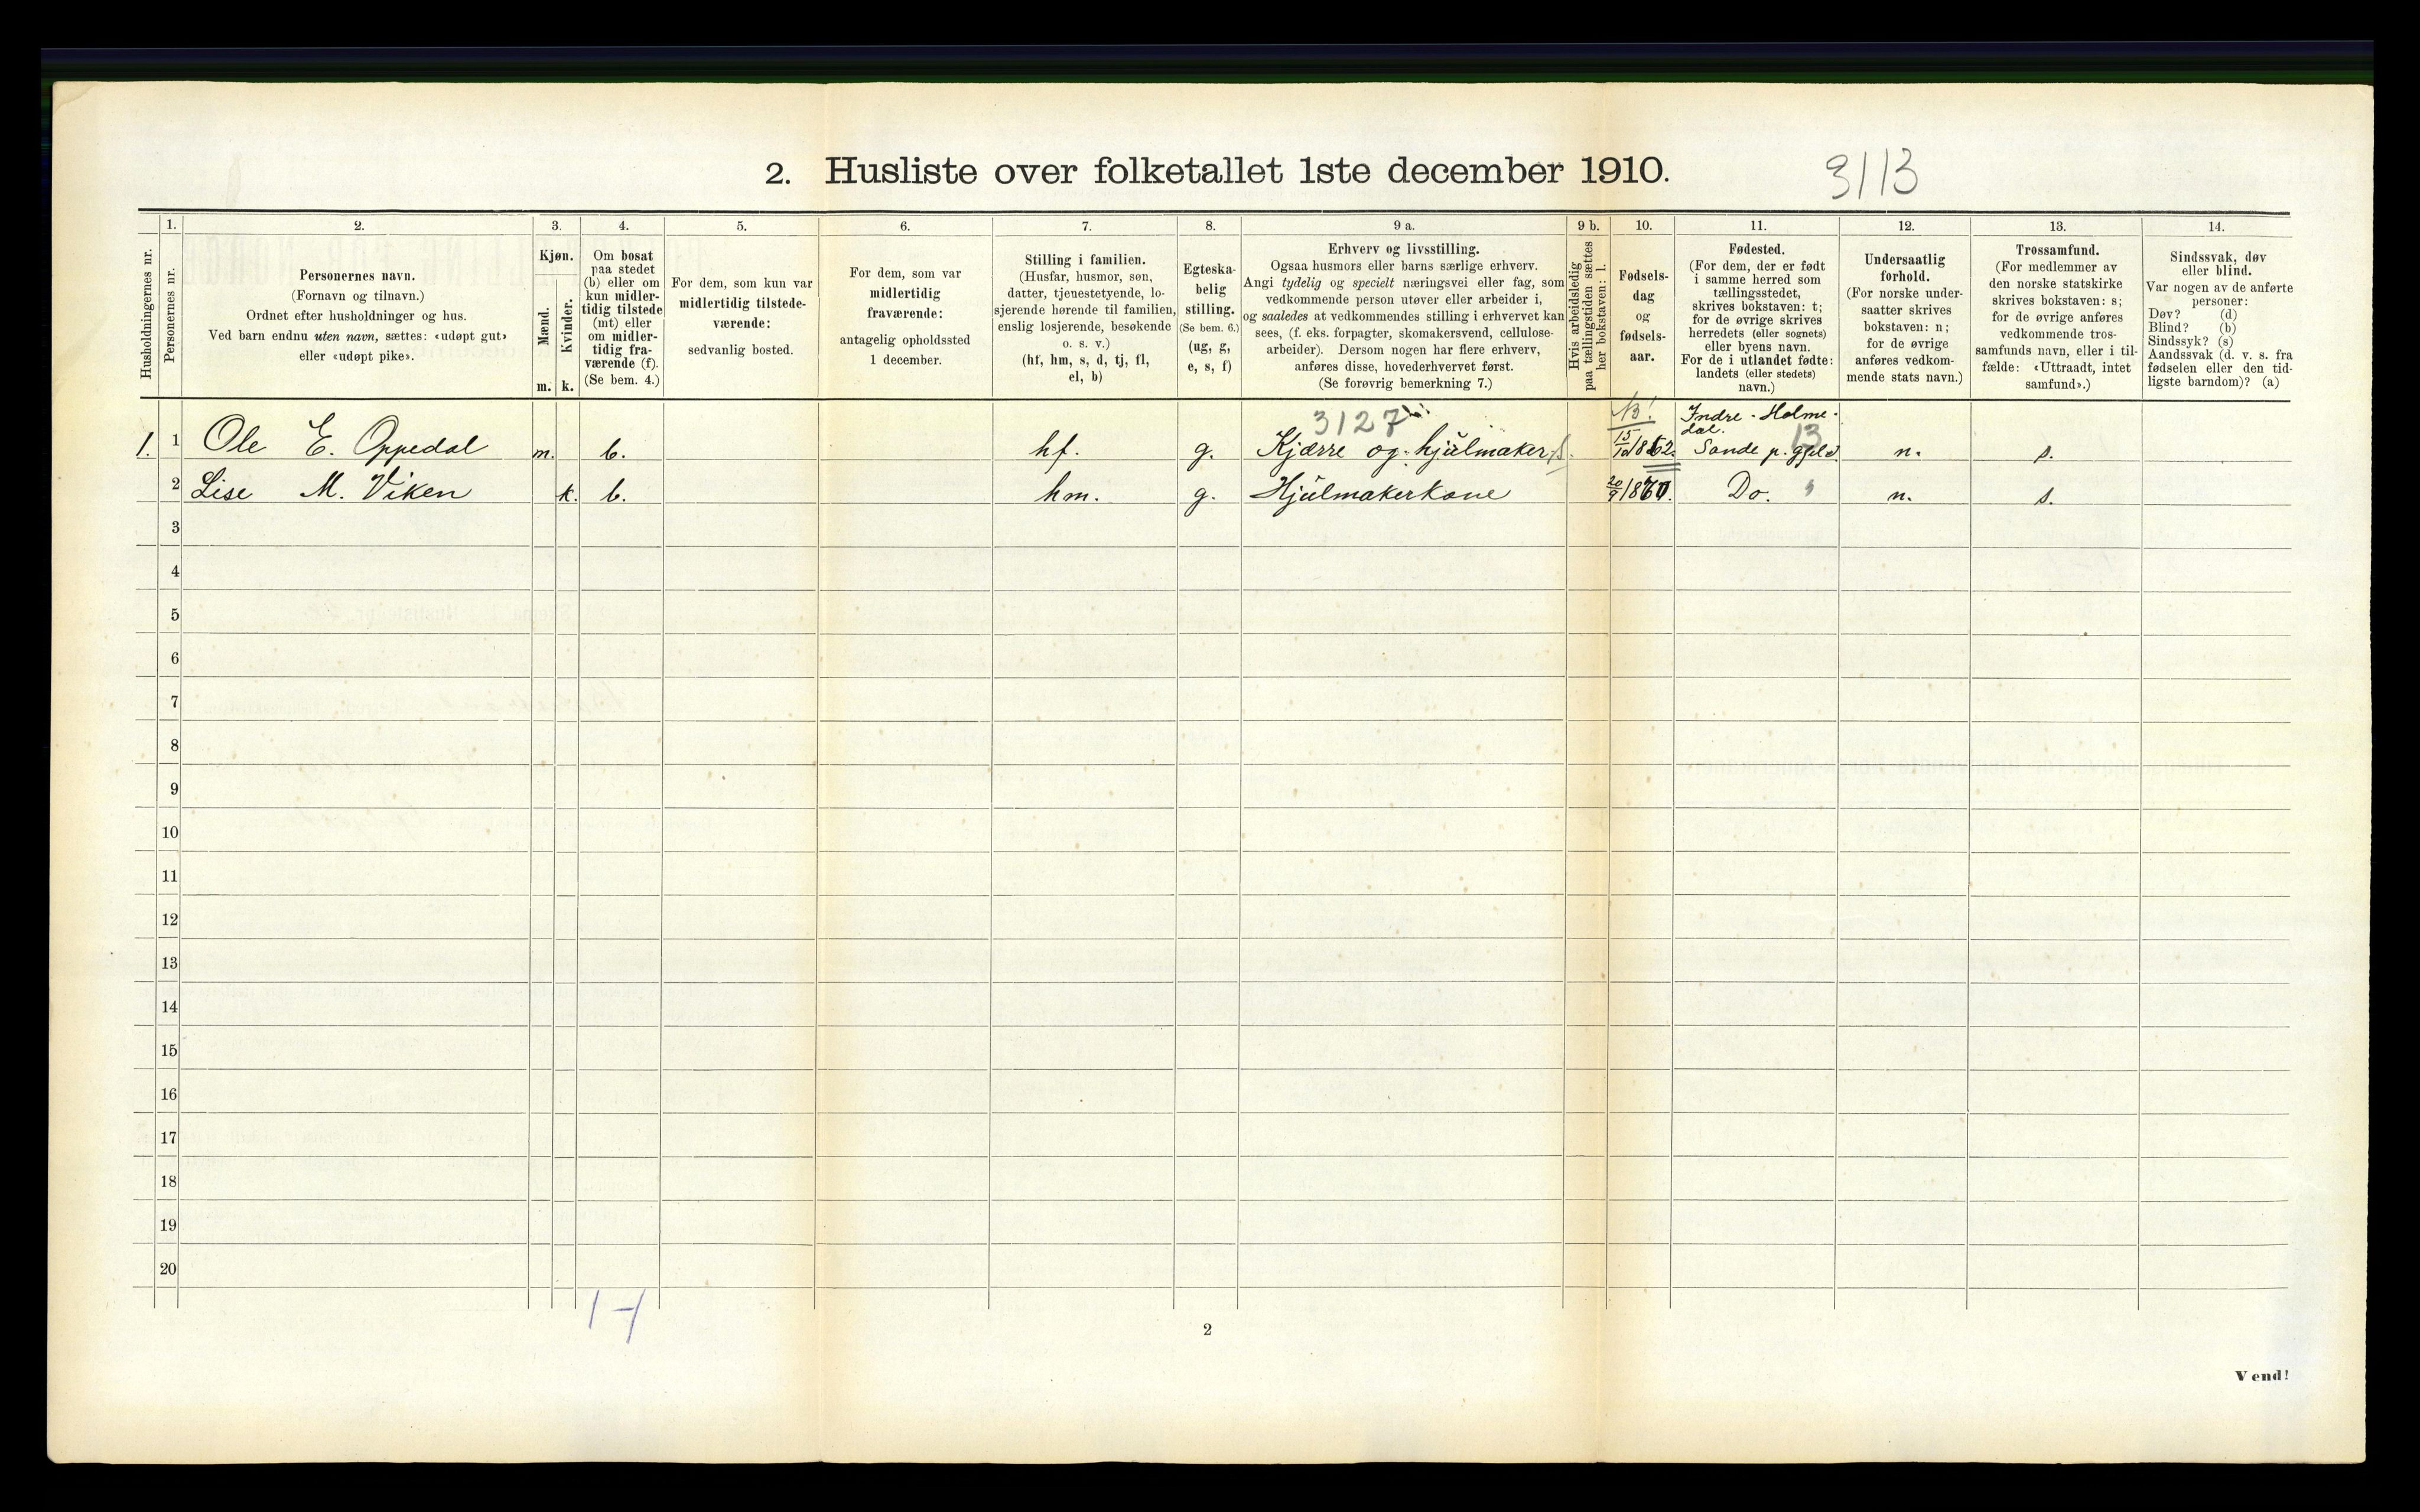 2. Husliste over folketallet 1ste december 1910.
3113
Husholdningernes nr.
1.
Personernes nr.
2.
Personernes navn.
(Fornavn og tilnavn.)
Ordnet efter husholdninger og hus.
Ved barn endnu uten navn, sættes: «udøpt gut»
eller «udøpt pike».
3.
Kjøn.
Mænd.
Kvinder.
m. k.
4.
Om bosat
paa stedet
(b) eller om
kun midler-
tidig tilstede
(mt) eller
om midler-
tidig fra-
værende (f).
(Se bem. 4.)
5.
For dem, som kun var
midlertidig tilstede-
værende:
sedvanlig bosted.
6.
For dem, som var
midlertidig
fraværende:
antagelig opholdssted
1 december.
7.
Stilling i familien.
(Husfar, husmor, søn,
datter, tjenestetyende, lo-
sjerende hørende til familien,
enslig losjerende, besøkende
o. s. v.)
(hf, hm, s, d, tj, fl,
el, b)
8.
Egteska-
belig
stilling.
(Se bem. 6.)
(ug, g,
e, s, f)
9 a.
Erhverv og livsstilling.
Ogsaa husmors eller barns særlige erhverv.
Angi tydelig og specielt næringsvei eller fag, som
vedkommende person utøver eller arbeider i,
og saaledes at vedkommendes stilling i erhvervet kan
sees, (f. eks. forpagter, skomakersvend, cellulose-
arbeider). Dersom nogen har flere erhverv,
anføres disse, hovederhvervet først.
(Se forøvrig bemerkning 7.)
9 b.
Hvis arbeidsledig
paa tællingstiden sættes
her bokstaven: l.
10.
Fødsels-
dag
og
fødsels-
aar.
11.
Fødested.
(For dem, der er født
i samme herred som
tællingsstedet,
skrives bokstaven: t;
for de øvrige skrives
herredets (eller sognets)
eller byens navn.
For de i utlandet fødte:
landets (eller stedets)
navn.)
12.
Undersaatlig
forhold.
(For norske under-
saatter skrives
bokstaven: n;
for de øvrige
anføres vedkom-
mende stats navn.)
13.
Trossamfund.
(For medlemmer av
den norske statskirke
skrives bokstaven: s;
for de øvrige anføres
vedkommende tros-
samfunds navn, eller i til-
fælde: «Uttraadt, intet
samfund».)
14.
Sindssvak, døv
eller blind.
Var nogen av de anførte
personer:
Døv? (d)
Blind? (b)
Sindssyk? (s)
Aandssvak (d. v. s. fra
fødselen eller den tid-
ligste barndom)? (a)
3127 Indre-Holme-
dal. 13
1. 1 Ole E. Oppedal m. b. hf. g. Kjærre og hjulmaker 1862 Sande p. gjeld. n. s.
2 Lise M. Viken k. b. hm. g. Hjulmakerkone 20/9 Do. n. s.
3
4
5
6
7
8
9
10
11
12
13
14
15
16
17
18
19
20
2
Vend!